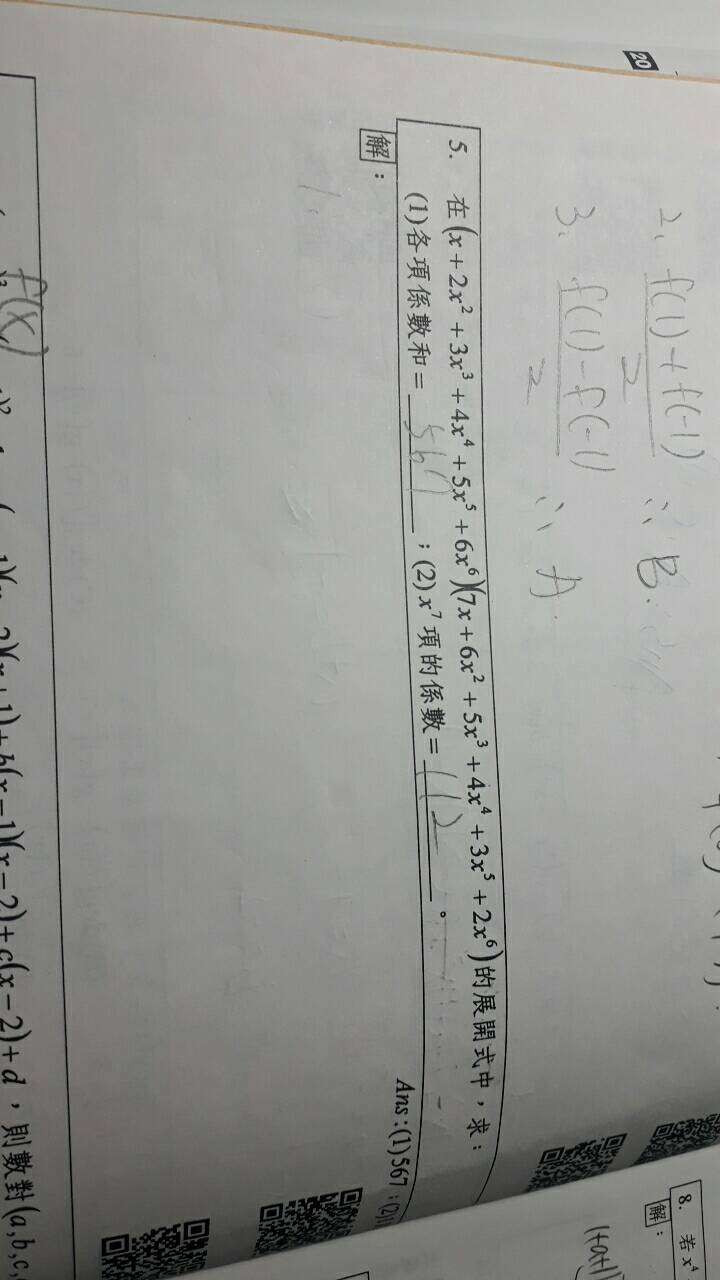 20
2. f(1)+f(-1)
2
∴ B.
3. f(1)-f(-1)
2
∴ A.
5. 在(x+2x²+3x³+4x⁴+5x⁵+6x⁶)(7x+6x²+5x³+4x⁴+3x⁵+2x⁶)的展開式中，求：
(1)各項係數和=567；(2)x⁷項的係數=112。
Ans:(1)567；(2)1
解：
f(x)
(x-1)(x-2)+c(x-2)+d，則數對(a,b,c,
8. 若x⁴
解：
(1+a+1)